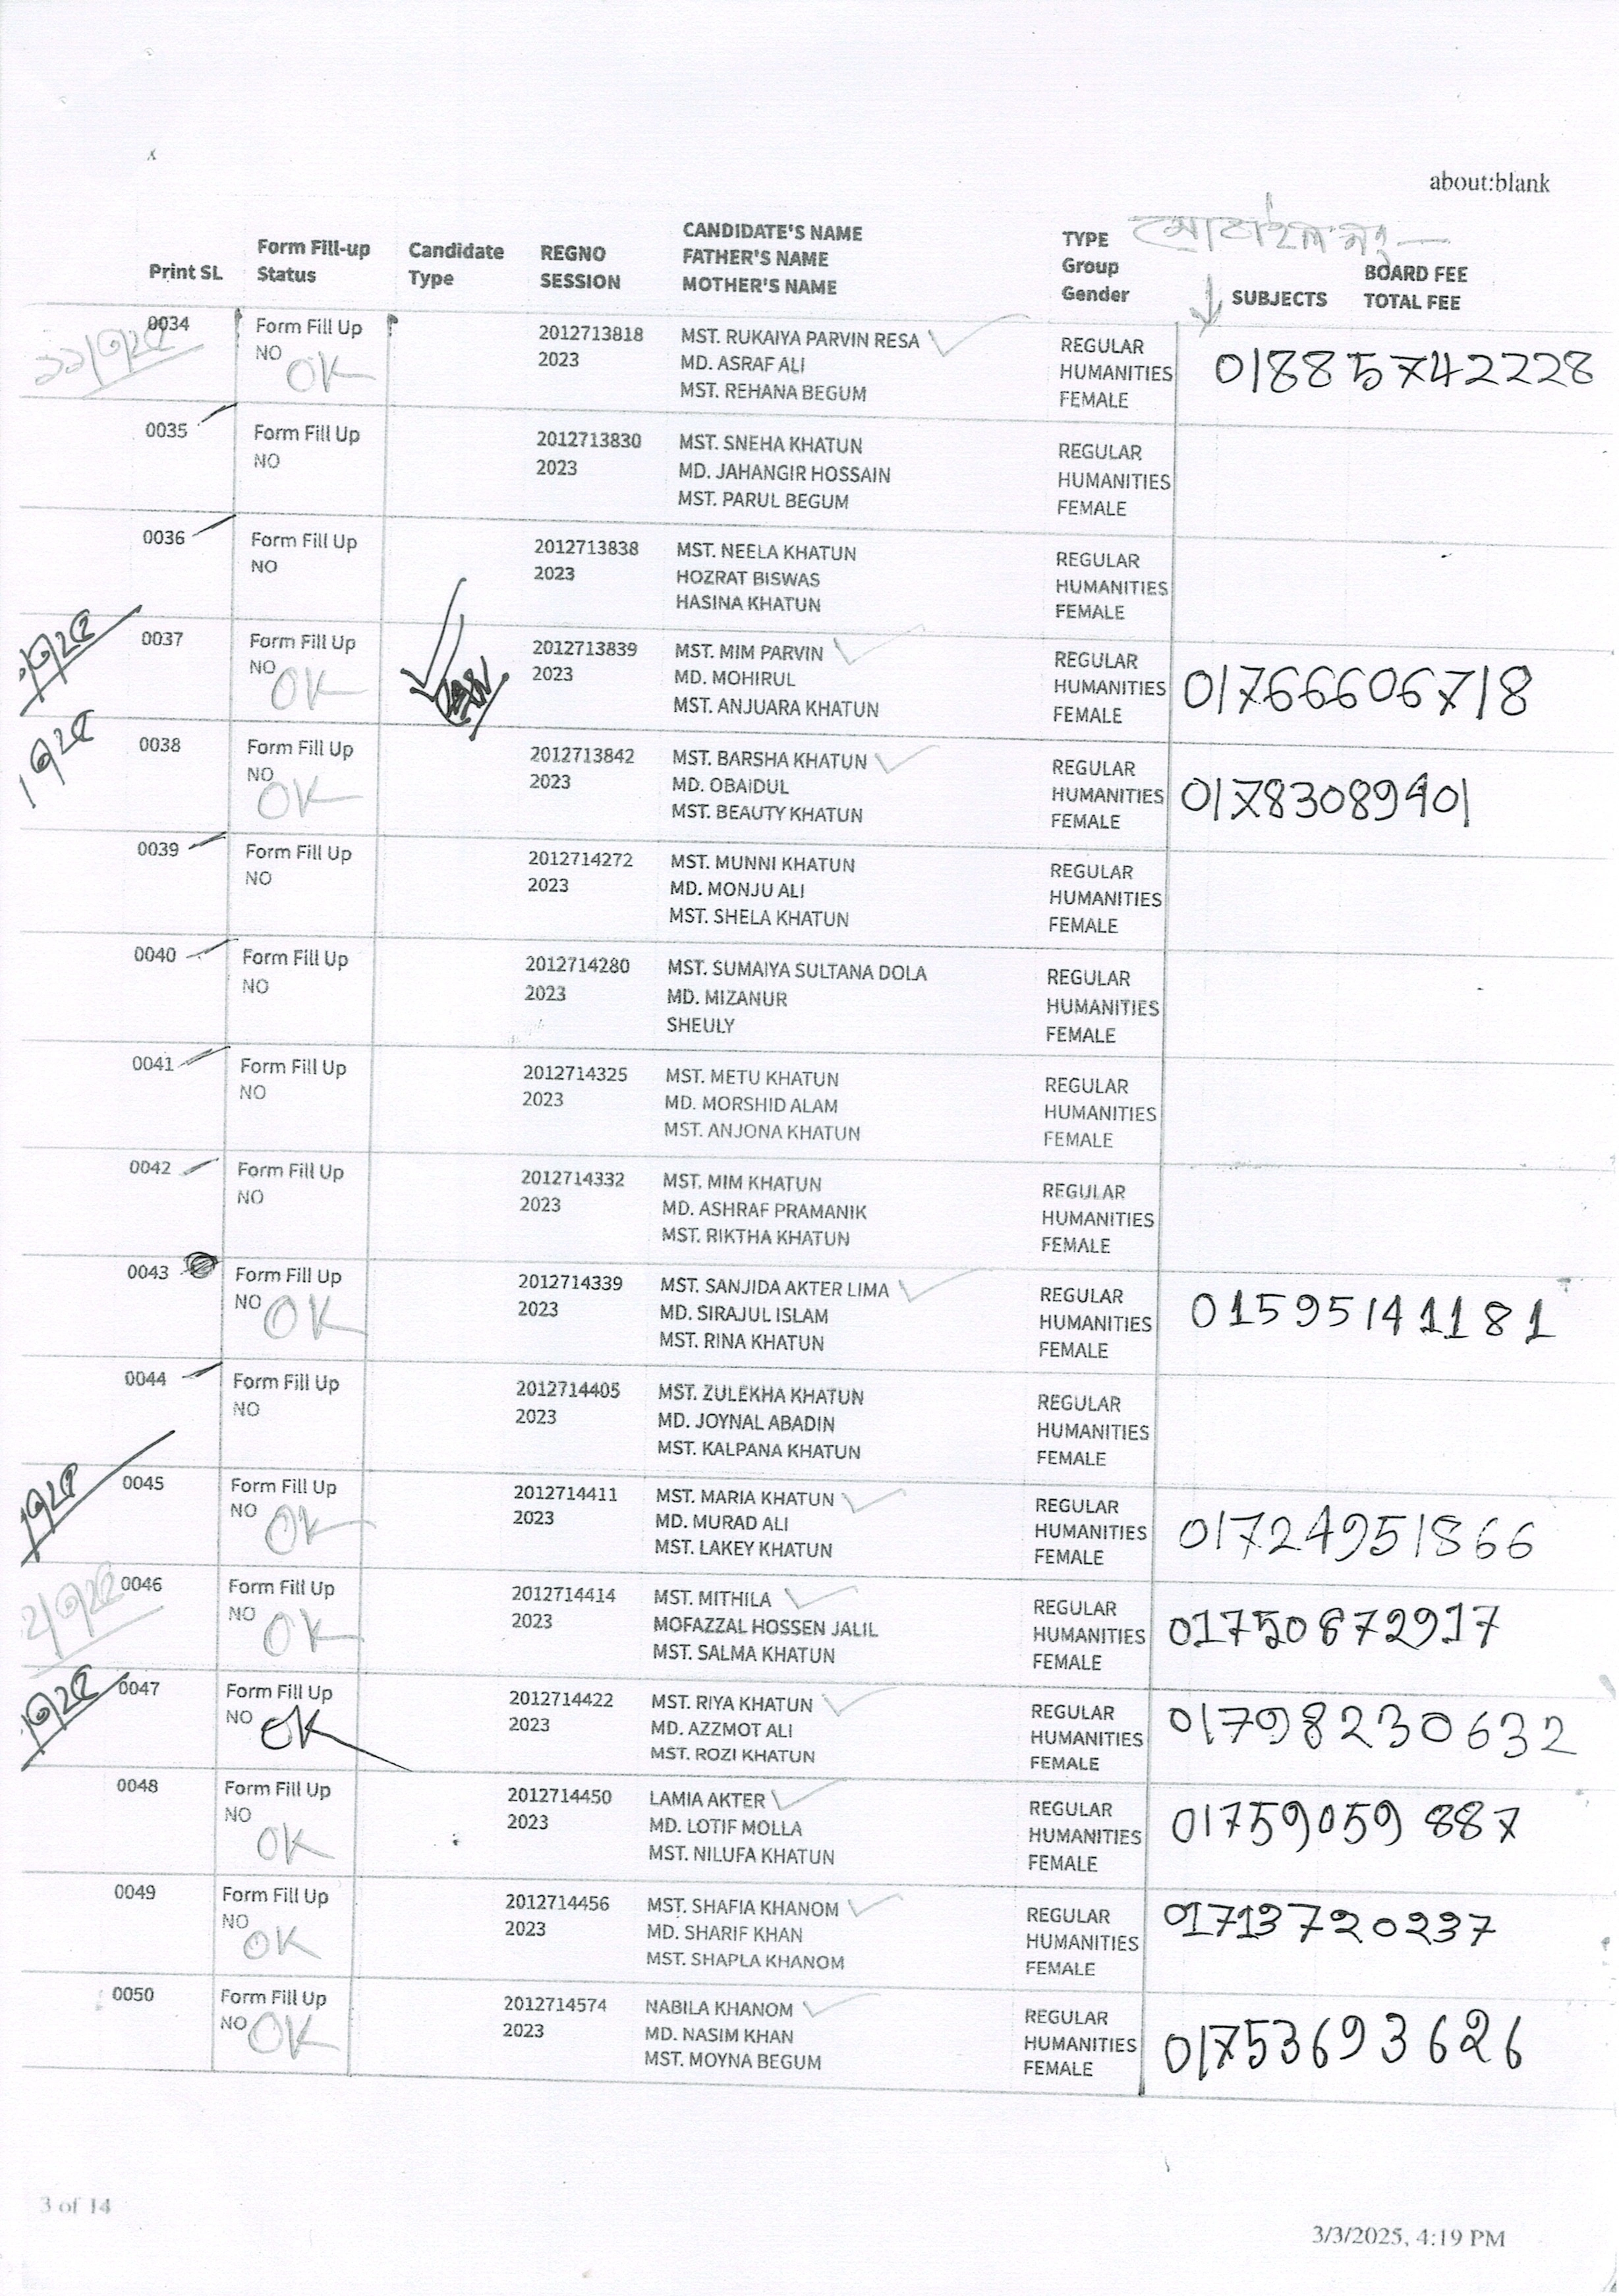 about:blank
মোবাইল নং
Print SL Form Fill-up Status Candidate Type REGNO SESSION CANDIDATE'S NAME FATHER'S NAME MOTHER'S NAME TYPE Group Gender SUBJECTS BOARD FEE TOTAL FEE
0034 Form Fill Up 2012713818 MST. RUKAIYA PARVIN RESA REGULAR
NO OK 2023 MD. ASRAF ALI HUMANITIES 01885742228
MST. REHANA BEGUM FEMALE
0035 Form Fill Up 2012713830 MST. SNEHA KHATUN REGULAR
NO 2023 MD. JAHANGIR HOSSAIN HUMANITIES
MST. PARUL BEGUM FEMALE
0036 Form Fill Up 2012713838 MST. NEELA KHATUN REGULAR
NO 2023 HOZRAT BISWAS HUMANITIES
HASINA KHATUN FEMALE
0037 Form Fill Up 2012713839 MST. MIM PARVIN REGULAR
NO OK 2023 MD. MOHIRUL HUMANITIES 01766606718
MST. ANJUARA KHATUN FEMALE
0038 Form Fill Up 2012713842 MST. BARSHA KHATUN REGULAR
NO OK 2023 MD. OBAIDUL HUMANITIES 01783089401
MST. BEAUTY KHATUN FEMALE
0039 Form Fill Up 2012714272 MST. MUNNI KHATUN REGULAR
NO 2023 MD. MONJU ALI HUMANITIES
MST. SHELA KHATUN FEMALE
0040 Form Fill Up 2012714280 MST. SUMAIYA SULTANA DOLA REGULAR
NO 2023 MD. MIZANUR HUMANITIES
SHEULY FEMALE
0041 Form Fill Up 2012714325 MST. METU KHATUN REGULAR
NO 2023 MD. MORSHID ALAM HUMANITIES
MST. ANJONA KHATUN FEMALE
0042 Form Fill Up 2012714332 MST. MIM KHATUN REGULAR
NO 2023 MD. ASHRAF PRAMANIK HUMANITIES
MST. RIKTHA KHATUN FEMALE
0043 Form Fill Up 2012714339 MST. SANJIDA AKTER LIMA REGULAR
NO OK 2023 MD. SIRAJUL ISLAM HUMANITIES 01595141181
MST. RINA KHATUN FEMALE
0044 Form Fill Up 2012714405 MST. ZULEKHA KHATUN REGULAR
NO 2023 MD. JOYNAL ABADIN HUMANITIES
MST. KALPANA KHATUN FEMALE
0045 Form Fill Up 2012714411 MST. MARIA KHATUN REGULAR
NO OK 2023 MD. MURAD ALI HUMANITIES 01724951866
MST. LAKEY KHATUN FEMALE
0046 Form Fill Up 2012714414 MST. MITHILA REGULAR
NO OK 2023 MOFAZZAL HOSSEN JALIL HUMANITIES 01750672917
MST. SALMA KHATUN FEMALE
0047 Form Fill Up 2012714422 MST. RIYA KHATUN REGULAR
NO OK 2023 MD. AZZMOT ALI HUMANITIES 01798230632
MST. ROZI KHATUN FEMALE
0048 Form Fill Up 2012714450 LAMIA AKTER REGULAR
NO OK 2023 MD. LOTIF MOLLA HUMANITIES 01759059887
MST. NILUFA KHATUN FEMALE
0049 Form Fill Up 2012714456 MST. SHAFIA KHANOM REGULAR
NO OK 2023 MD. SHARIF KHAN HUMANITIES 01713720237
MST. SHAPLA KHANOM FEMALE
0050 Form Fill Up 2012714574 NABILA KHANOM REGULAR
NO OK 2023 MD. NASIM KHAN HUMANITIES 01753693626
MST. MOYNA BEGUM FEMALE
3 of 14
3/3/2025, 4:19 PM